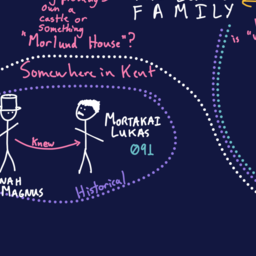 own a
castle or
something
"Morlund House"?
FAMILY
is
Somewhere in Kent
Knew
MORTAKAI
LUKAS
091
NAH
MAGNUS
Historical